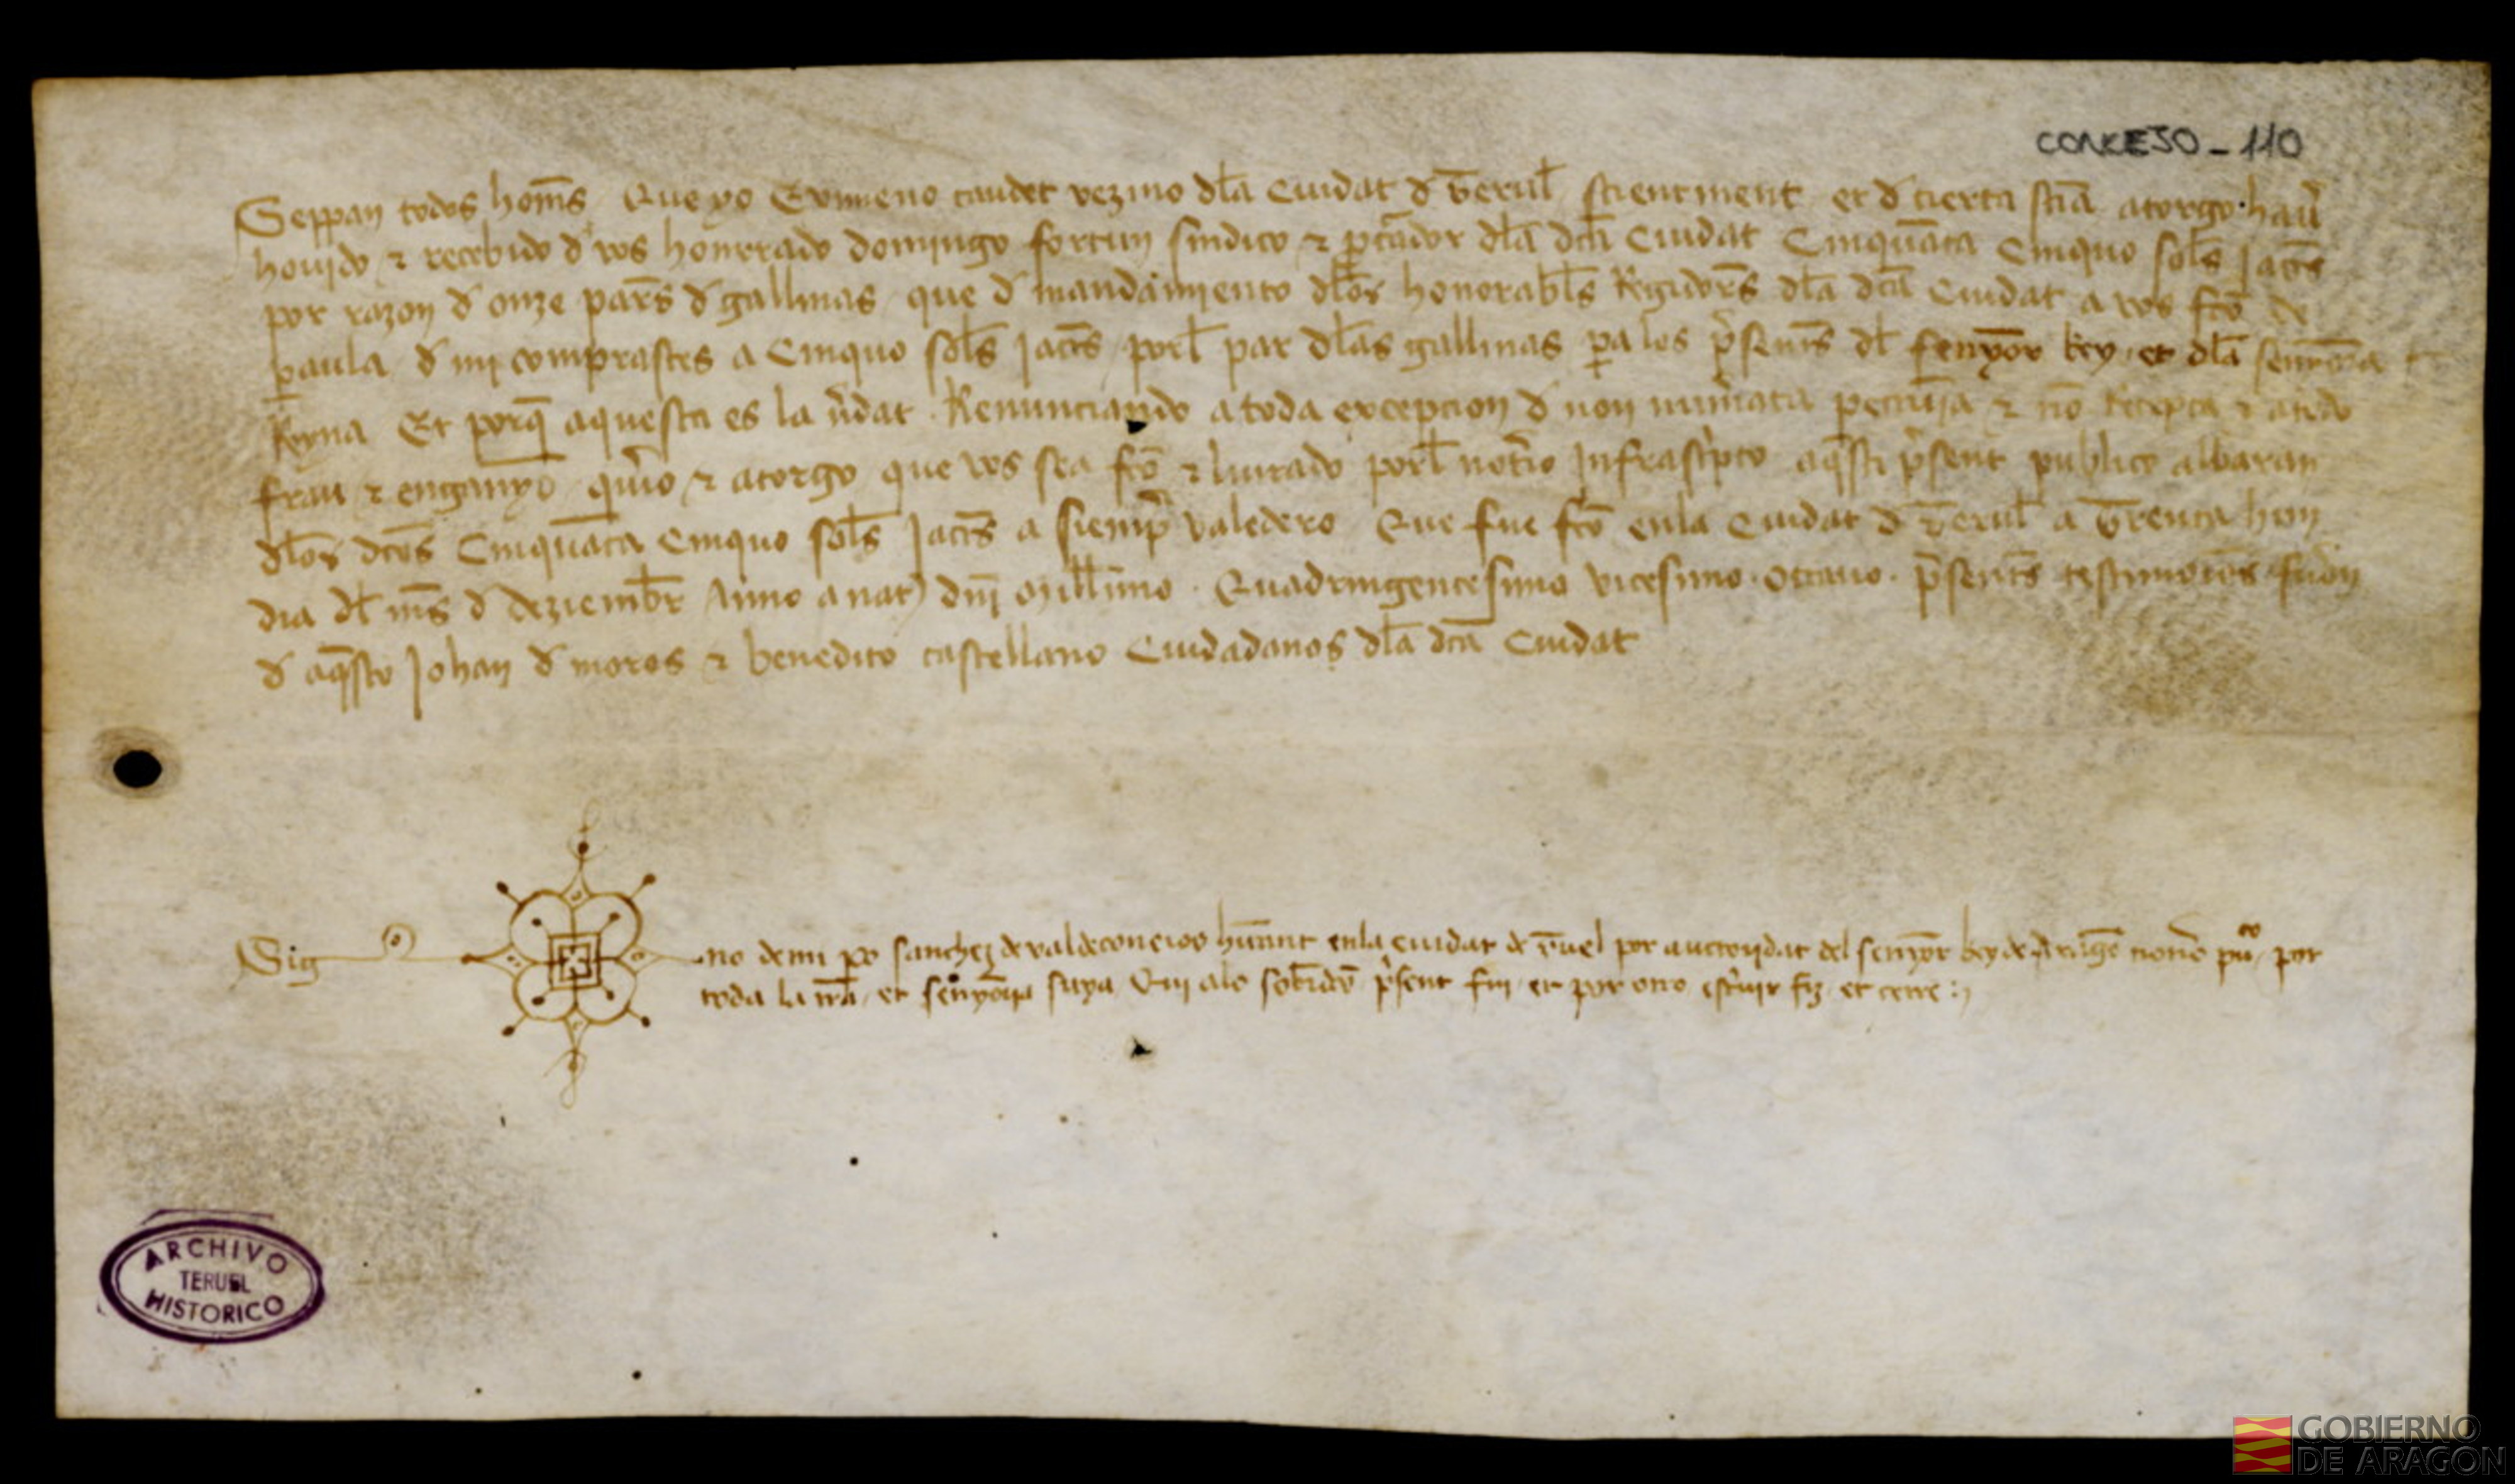 CONCEJO - 110
Seppan todos hom̄s Que yo Exumeno caudet vezino dl̄a Ciudat d̄ T̄erul̄ scientment et d̄ cierta scīa atorgo hau̅
houido ⁊ recebido d̄ vos honrrado domingo fortun sindico ⁊ p̱cūador dl̄a dc̄a Ciudat Cinquāta Cinquo sol̄s Jacc̄s
por razon d̄ onze par̄s d̄ gallinas que d̄ mandamiento dl̄os honorabl̄s Regidor̄s dl̄a dc̄a Ciudat a vos fc̄o de
p̱aula d̄ mi comprastes a Cinquo sol̄s Jacc̄s porl̄ par dl̄as gallinas p̱a los p̄sent̄s dl̄ senyor Rey et dl̄a senyora
Reyna Et porq̄ aquesta es la v̄dat Renunciando a toda excepcion d̄ non num̄ata pecunia ⁊ nō Recepta ⁊ a todo
frau ⁊ enganyo qui̅o ⁊ atorgo que vos sea fc̄o ⁊ liurado porl̄ not̄io Infrasc̄pto aq̄sti p̄sent publico albaran
dl̄os dc̄os Cinquāta Cinquo sol̄s Jacc̄s a siemp̄ valedero Que fue fc̄o enla Ciudat d̄ T̄erul̄ a T̄renta hun
dia dl̄ m̄s d̄ deziembr̄ Anno a nat̄ dn̄j Mill̄imo Quadringentesimo vicesimo octauo p̄sent̄s testimonio̅s fuero̅n
d̄ aq̄sto Johan d̄ moros ⁊ benedito castellano Ciudadanos dl̄a dc̄a Ciudat
Sig no de mi p̱o sanchez de valdeconeios hītant enla Ciudat de T̄uel por auctoridat del senyor Rey de Aragō not̄io pu̅co por
toda la tr̄ra et senyoria suya Qui alo sobr̄dc̄o p̄sent fui et por otro esc̄uir fiz et cerre
ARCHIVO
TERUEL
HISTORICO
GOBIERNO
DE ARAGON